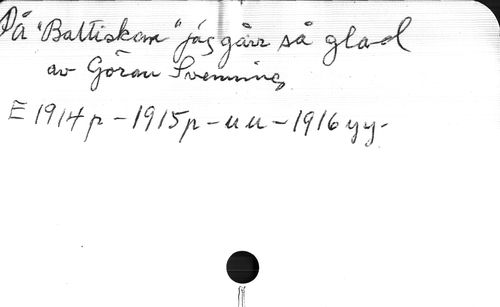 På "Baltiskan" jag går så glad
av Göran Svenning
E 1914 p - 1915 p - u u - 1916 y y -